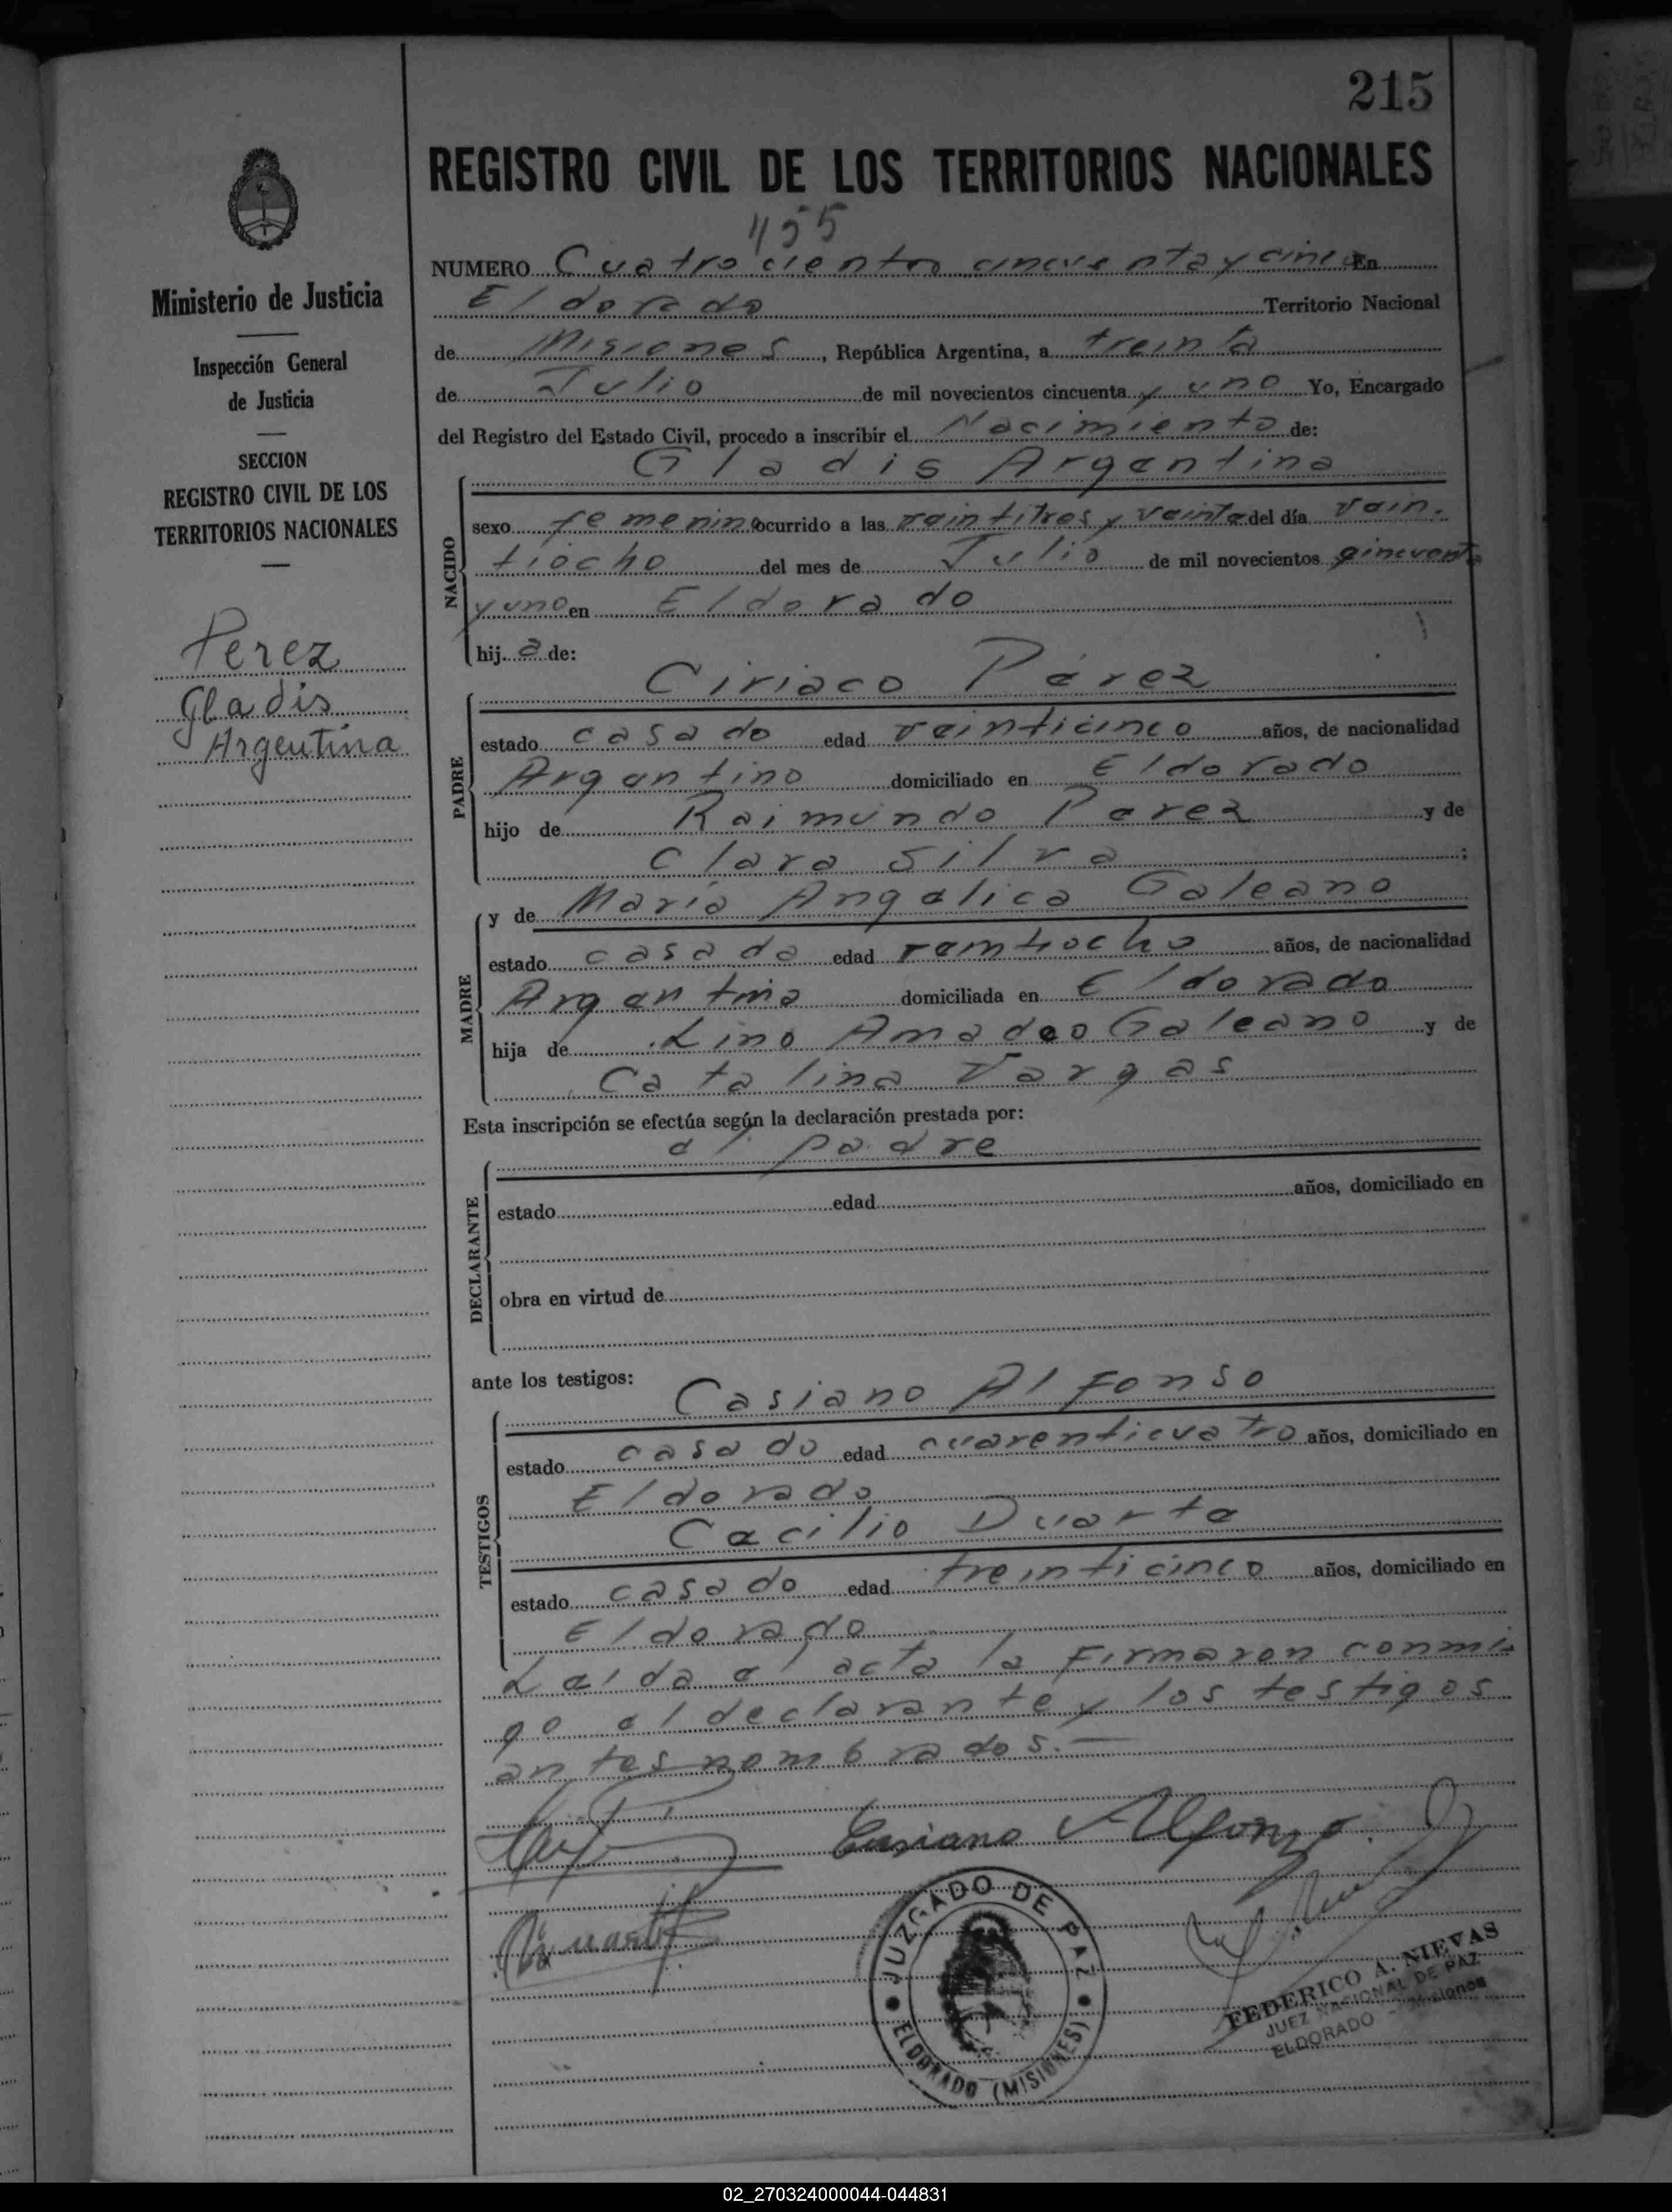 215
REGISTRO CIVIL DE LOS TERRITORIOS NACIONALES
Ministerio de Justicia
Inspección General
de Justicia
SECCION
REGISTRO CIVIL DE LOS
TERRITORIOS NACIONALES
Perez
Gladis
Argentina
455
NUMERO Cuatrocientos cincuenta y cinco En
Eldorado Territorio Nacional
de Misiones, República Argentina, a treinta
de Julio de mil novecientos cincuenta y uno Yo, Encargado
del Registro del Estado Civil, procedo a inscribir el Nacimiento de:
Gladis Argentina
NACIDO
sexo femenino ocurrido a las veintitres y veinte del día vein-
tiocho del mes de Julio de mil novecientos cincuenta
y uno en Eldorado
hij a de:
Ciriaco Pérez
PADRE
estado casado edad veinticinco años, de nacionalidad
Argentino domiciliado en Eldorado
hijo de Raimundo Perez y de
Clara Silva;
MADRE
y de María Angelica Galeano
estado casada edad veintiocho años, de nacionalidad
Argentina domiciliada en Eldorado
hija de Lino Amadeo Galeano y de
Catalina Vargas
Esta inscripción se efectúa según la declaración prestada por:
el padre
DECLARANTE
estado edad años, domiciliado en
obra en virtud de
ante los testigos:
Casiano Alfonso
TESTIGOS
estado casado edad cuarenticuatro años, domiciliado en
Eldorado
Cecilio Duarte
estado casado edad treinticinco años, domiciliado en
Eldorado
Leída el acta la firmaron conmi-
go el declarante y los testigos
antes nombrados.—
Casiano Alfonzo
JUZGADO DE PAZ
ELDORADO (MISIONES)
FEDERICO A. NIEVAS
JUEZ NACIONAL DE PAZ
ELDORADO - Misiones
02_270324000044-044831